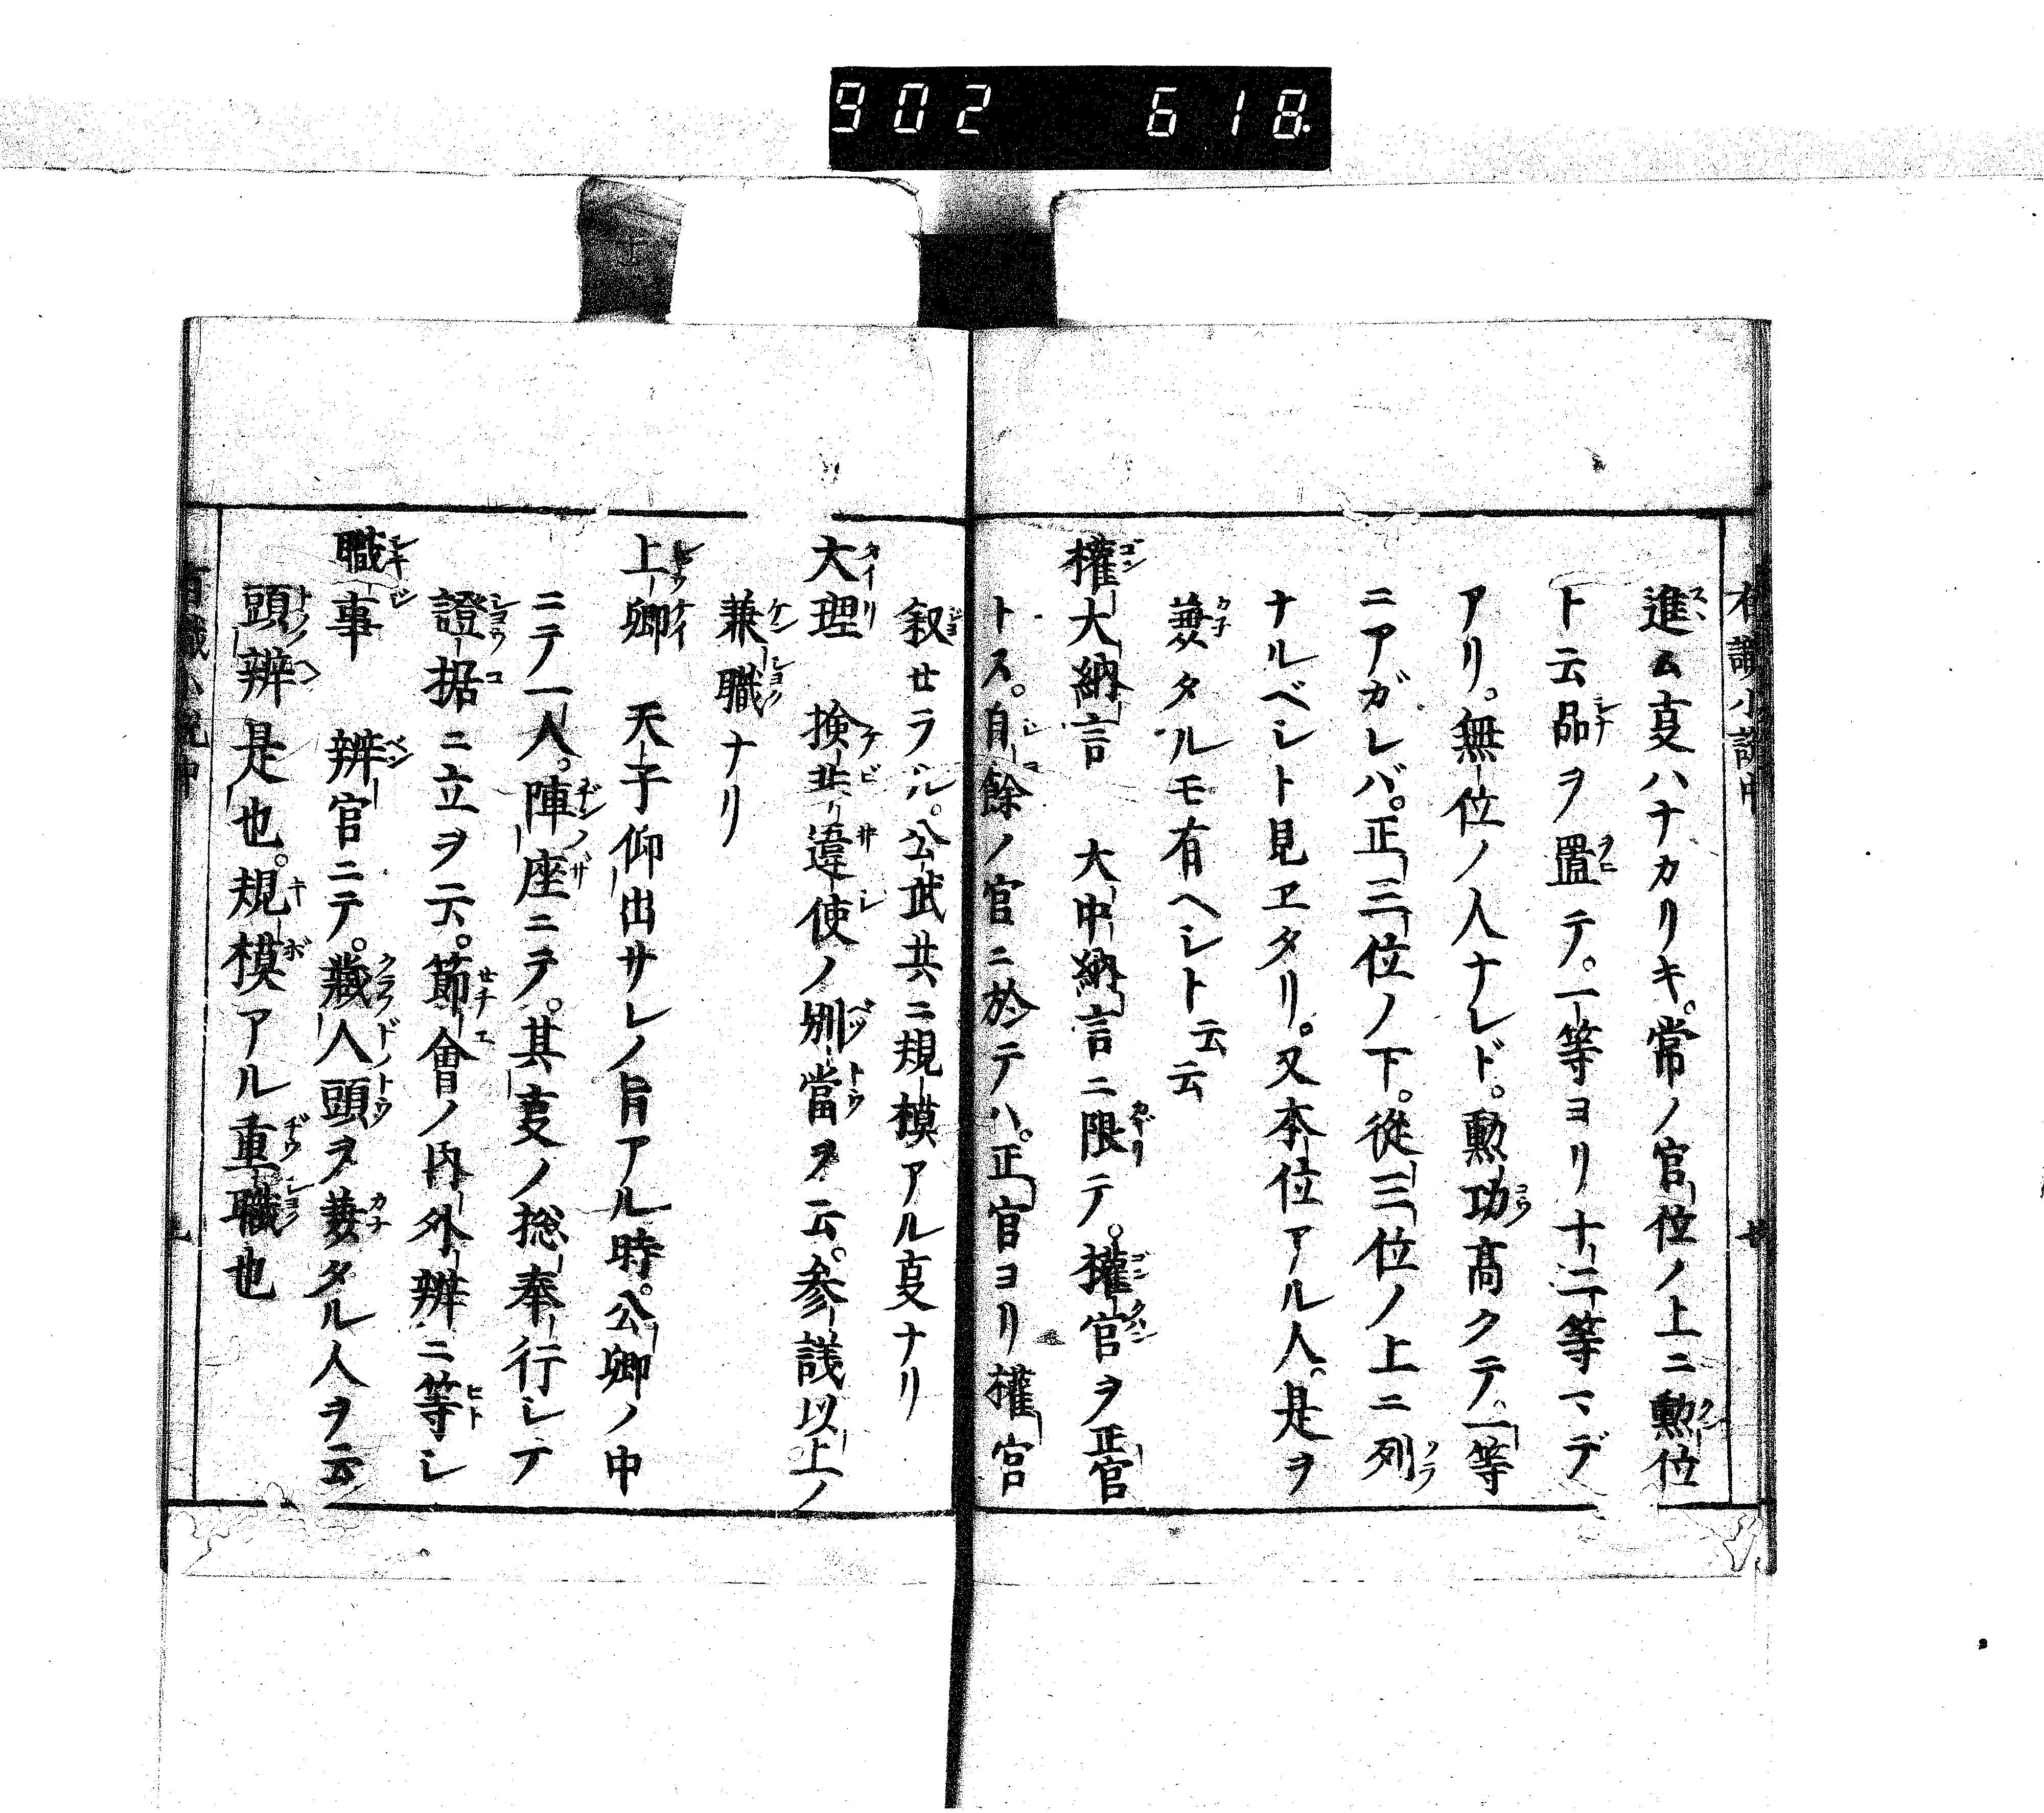 902 618
進ム亊ハナカリキ。常ノ官位ノ上ニ勲位
ト云品ヲ置テ。一等ヨリ十二等マデ
アリ。無位ノ人ナレド。勲功高クテ。一等
ニアガレバ。正三位ノ下。從三位ノ上ニ列
ナルベシト見ヱタリ。又本位アル人。是ヲ
兼タルモ有ヘシト云云
權大納言 大中納言ニ限テ。權官ヲ正官
トス。自餘ノ官ニ於テハ。正官ヨリ權官
叙せラル。公武共ニ規模アル亊ナリ
大理 検非違使ノ別當ヲ云。参議以上ノ
兼職ナリ
上卿 天子仰出サレノ旨アル時。公卿ノ中
ニテ一人。陣座ニテ。其亊ノ捴奉行シテ
證据ニ立ヲ云。節會ノ内外辨ニ等シ
職事 辨官ニテ。藏人頭ヲ兼タル人ヲ云
頭辨是也。規模アル重職也